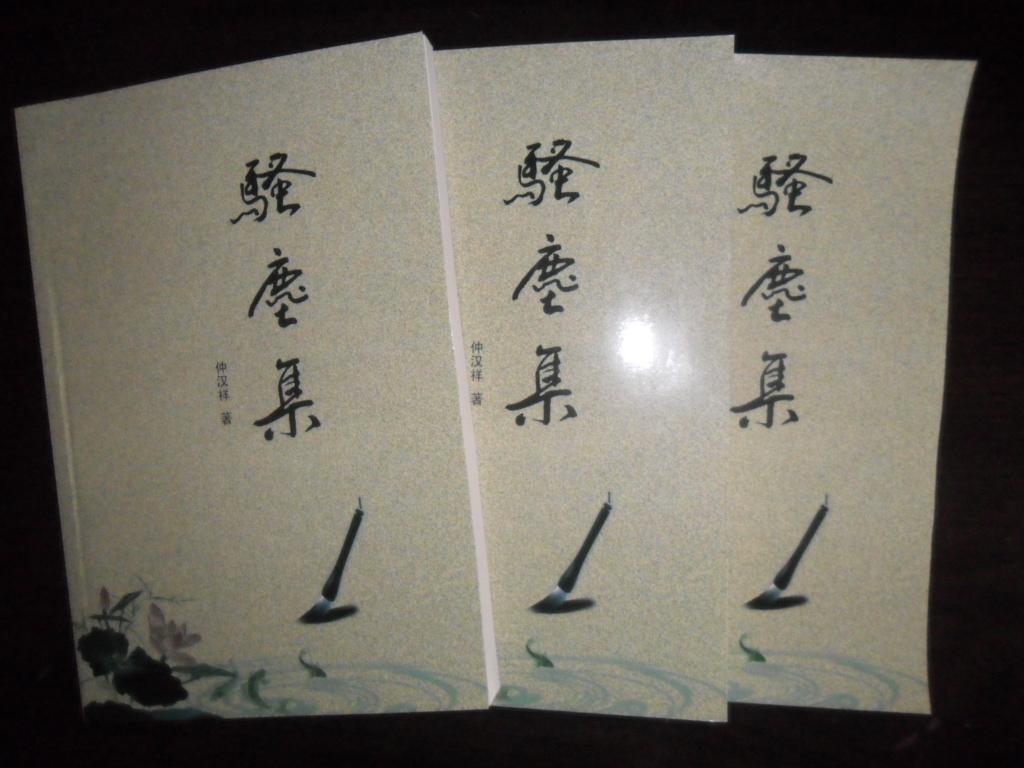 騷塵集
仲汉祥 著
騷塵集
仲汉祥 著
騷塵集